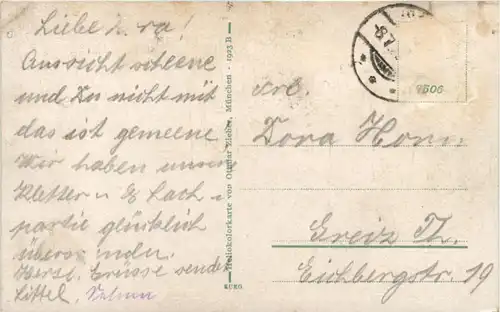 Liebe Dora!
Aussicht scheene
und Du nicht mit
das ist gemeene
Wir haben unsere
Kletter u.
partie glücklich
überstanden.
Herzl. Grüsse sendet
Littel.
Hellokolorkarte von Ottmar Zieher, München - 1923 B
KURG
7506
Frl.
Dora
Greiz Th.
Eichbergstr. 19